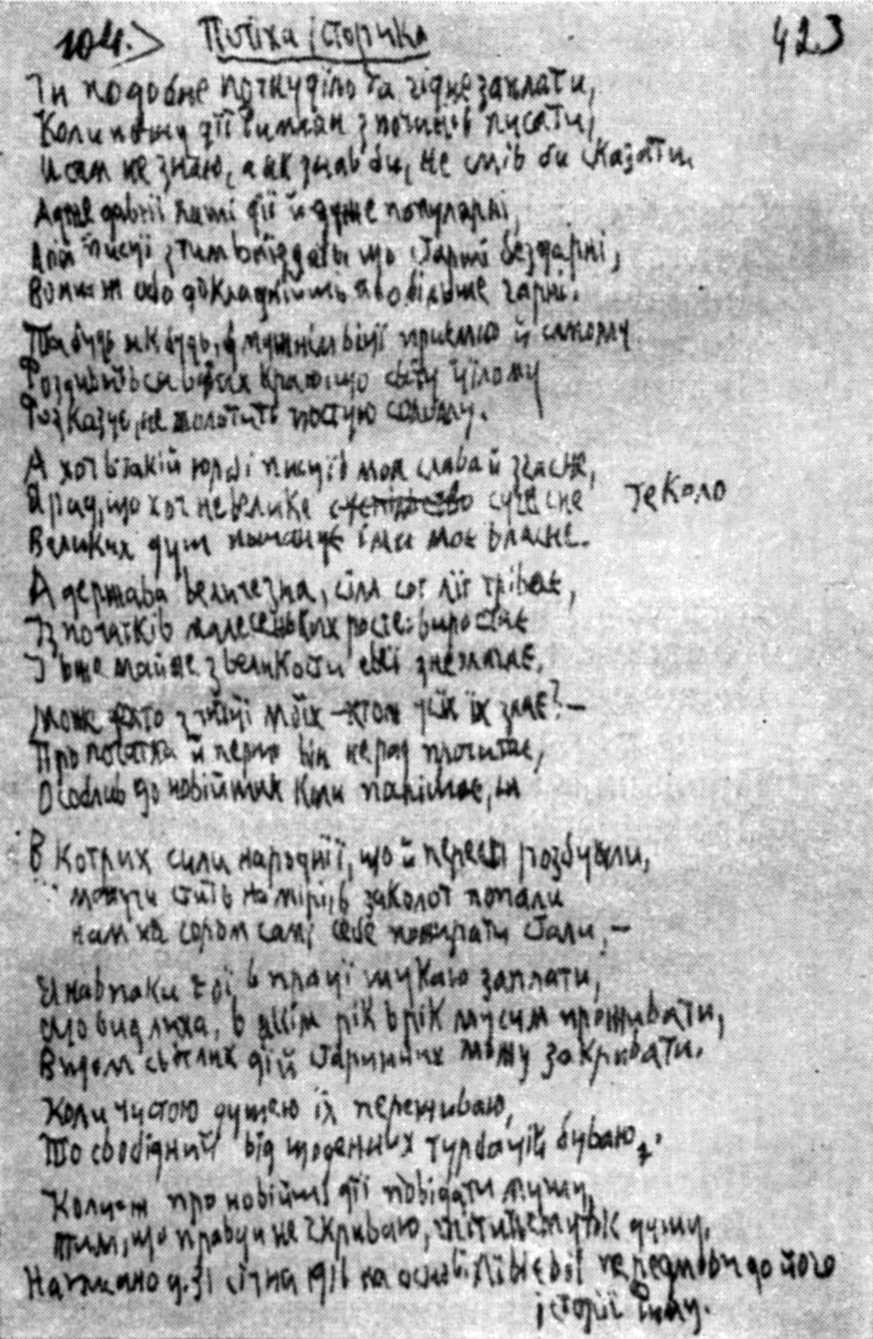 104.> Потіха історика 423
Чи подобне почну діло та гідне заплати,
Коли почну дії Римлян з починів писати,
И сам не знаю, а як знав би, не смів би сказати.
Адже давнії самі дії й дуже популярні,
А писці з тим все їздять, що старші бездарні,
Вони ж або докладнійші, або більше гарні.
Та будь як будь,
що світу цілому
Розказує, не молотить пустую солому.
А хоч в такій юрмі писців моя слава й згасне,
Я рад, що хоч невелике сучасне те коло
Великих душ имя моє власне.
А держава величезна, сіл сот лїт тріває,
Із початків малесеньких росте, виростає
І вже майже з великости
Може хто з моїх — хто ж усїх їх знає? —
Про початки й перш він не раз прочитає,
Особливо до новійших коли
В котрих сили народнії, що й перед розбували,
могучи стать на мірі, в заколот попали
нам на сором самі себе пожирати стали, —
И навпаки в тої праці шукаю заплати,
Що вид лиха, в яким рік в рік мусим проживати,
Видом сьвітлих дїй старинних можу закривати.
Коли чистою душею їх переживаю,
То свобідний від щоденних турбацій буваю.
Коли ж про новійші дії повідати мушу,
Тим, що правди не скриваю, душу.
Написано д. 31 січня 1916 на основі Лівієвої передмови до його
історії Риму.